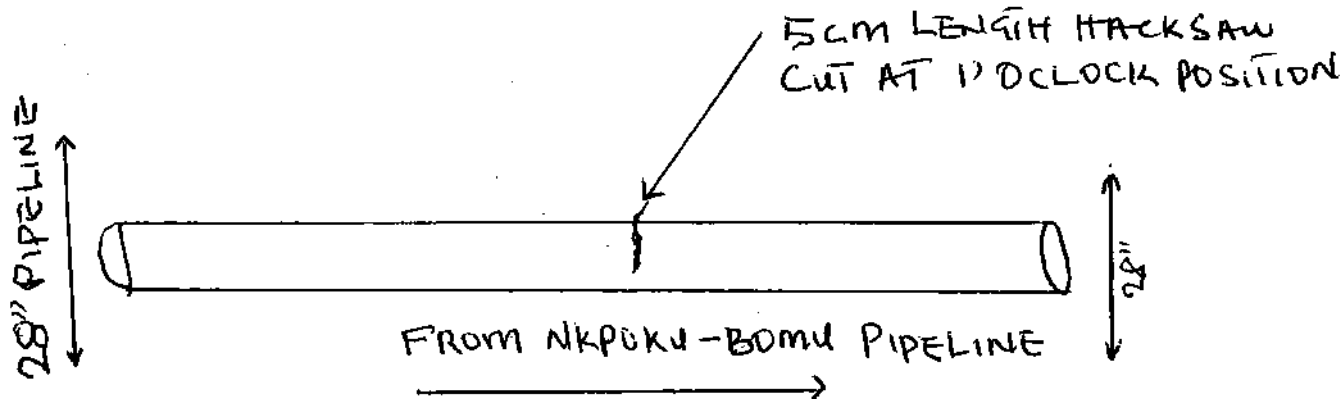 5cm LENGTH HACKSAW
CUT AT 1'OCLOCK POSITION
28" PIPELINE
28"
FROM NKPOKU-BOMU PIPELINE